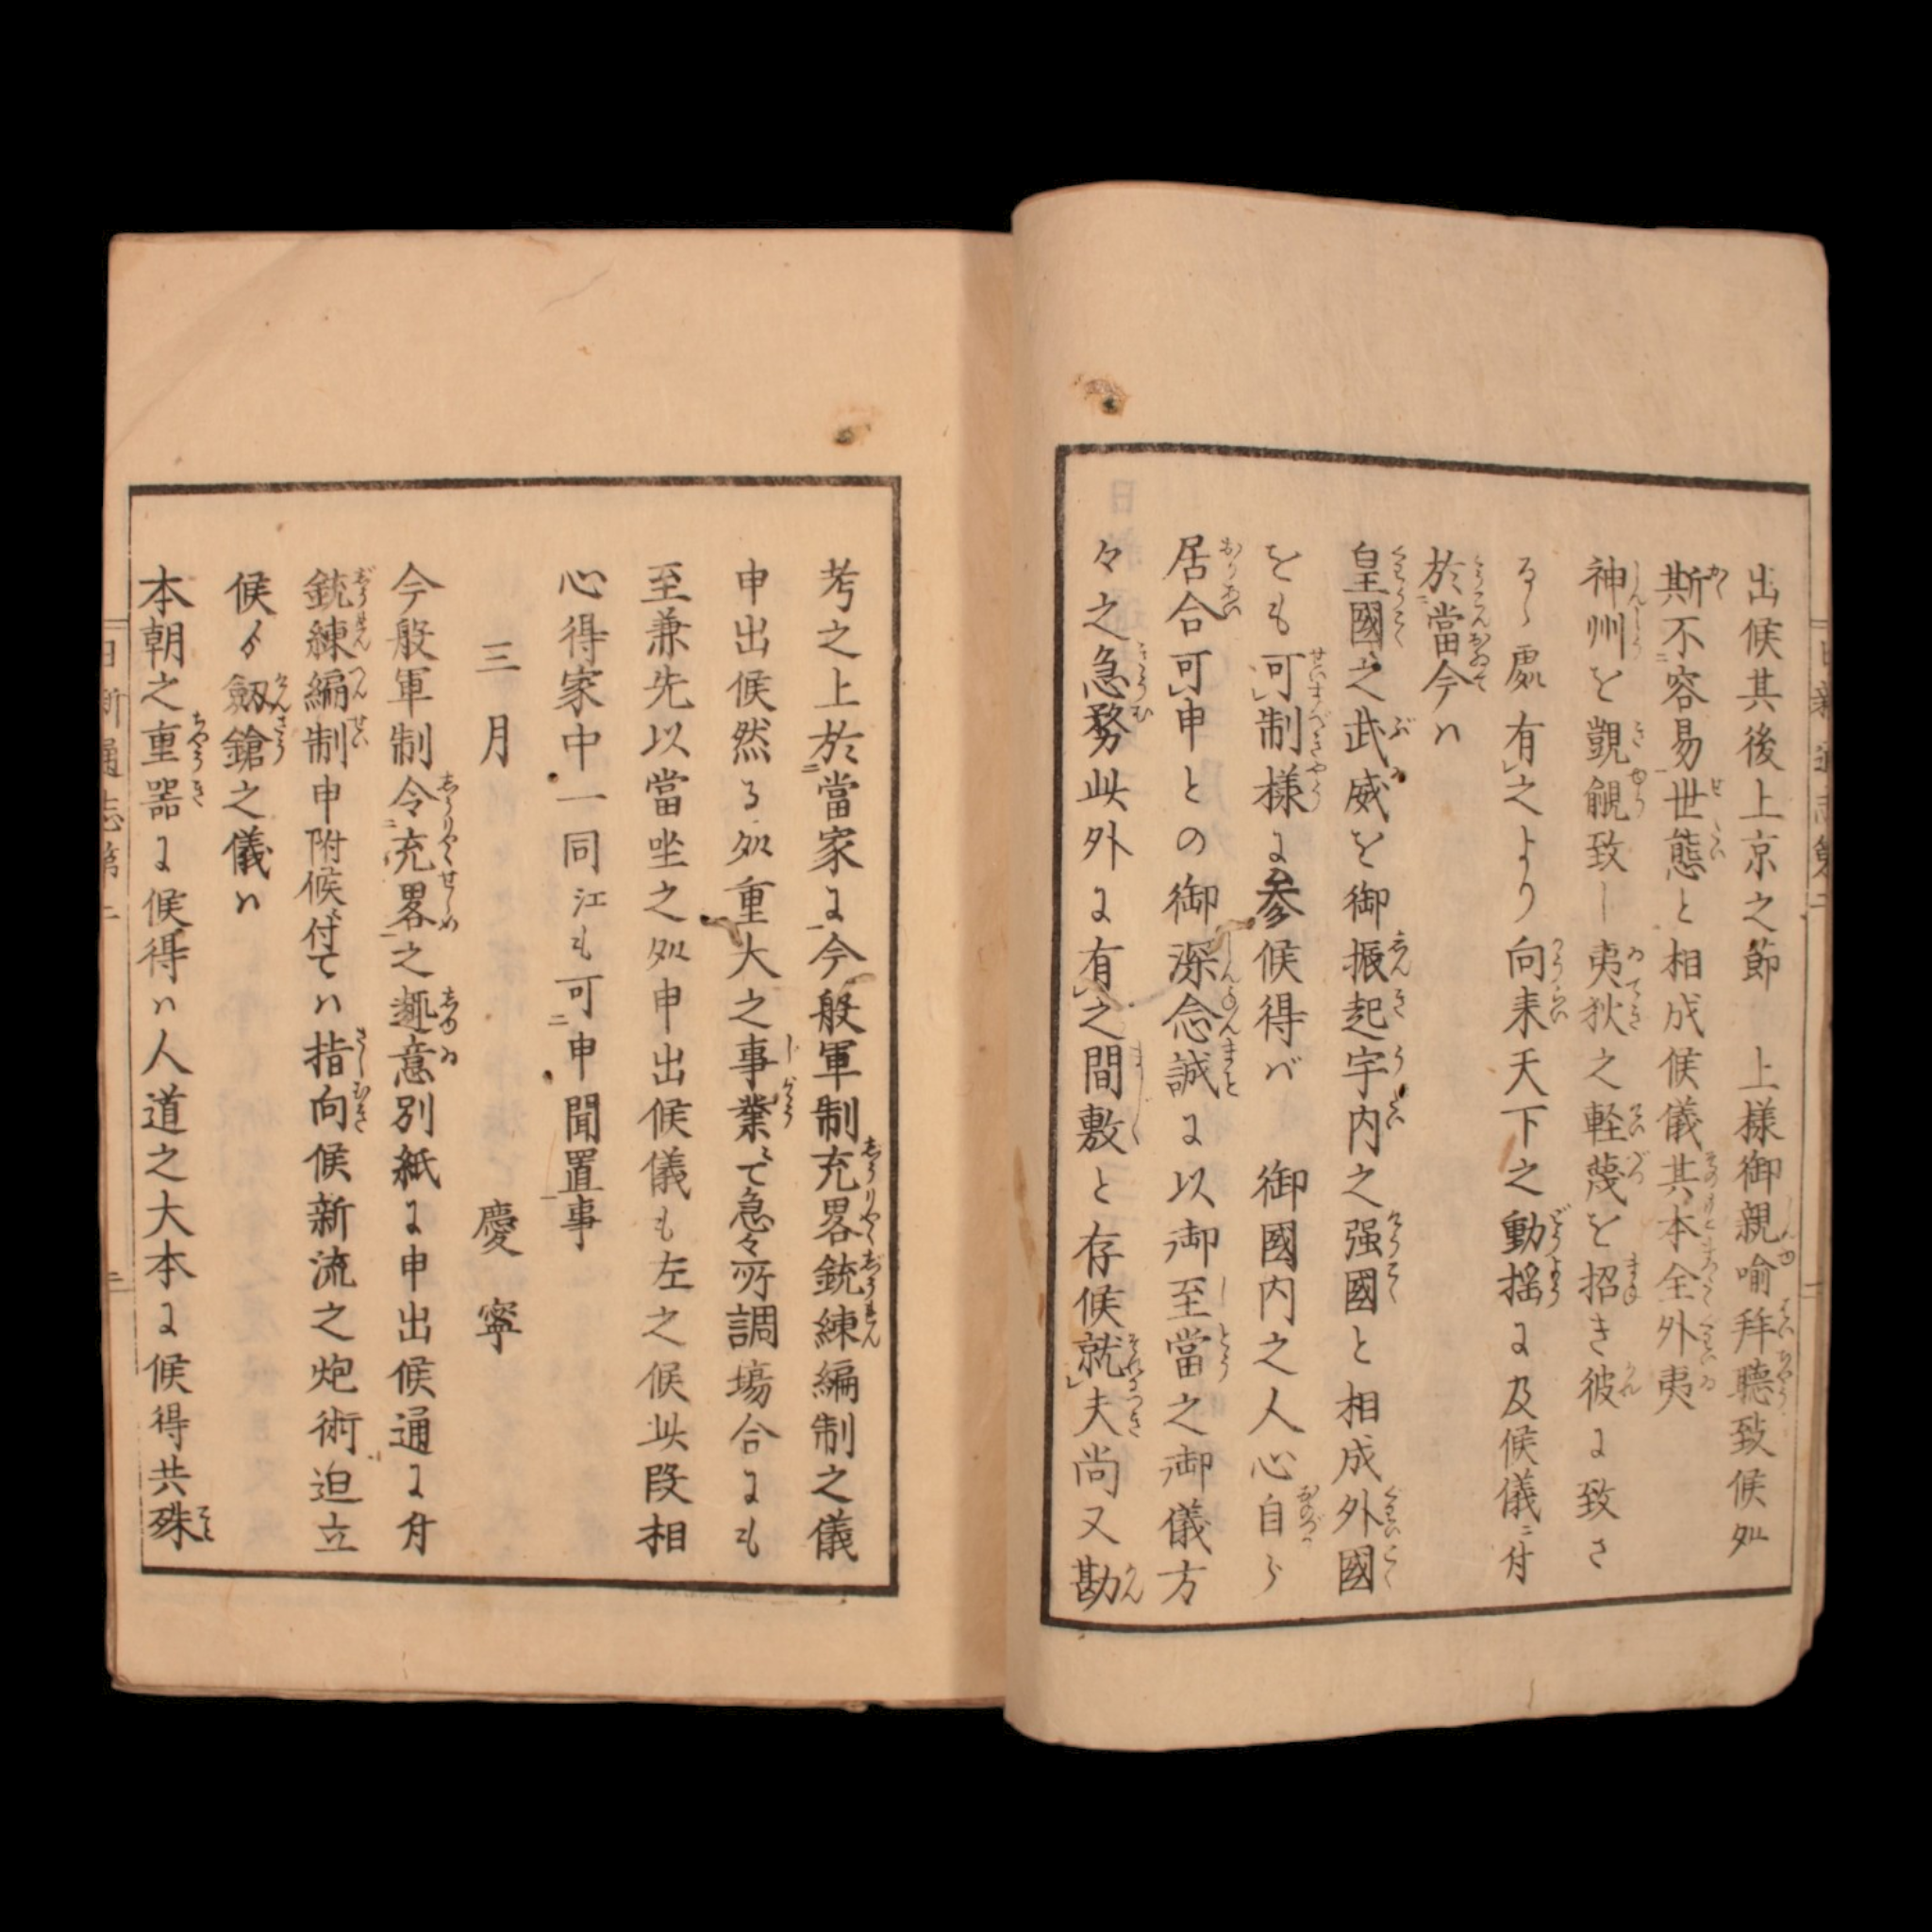 出候其後上京之節　上様御親喩拜聽致候処
斯不容易世態と相成候儀其本全外夷
神州を覬覦致し夷狄之軽蔑を招き彼に致さ
るゝ處有之より向来天下之動揺に及候儀ニ付
於當今ハ
皇國之武威を御振起宇内之强國と相成外國
をも可制様に参候得バ　御國内之人心自ら
居合可申との御深念誠に以御至當之御儀方
々之急務此外に有之間敷と存候就夫尚又勘
考之上於當家に今般軍制充畧銃練編制之儀
申出候然る処重大之事業ニて急々所調塲合にも
至兼先以當坐之処申出候儀も左之候此段相
心得家中一同江も可申聞置事
三月　慶寧
今般軍制令充畧之趣意別紙に申出候通に付
銃練編制申附候付てハ指向候新流之炮術迫立
候ゟ劔鎗之儀ハ
本朝之重器に候得ハ人道之大本に候得共殊
日新通志第二　二